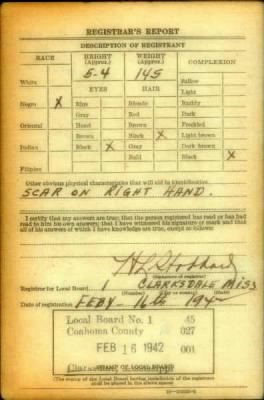 REGISTRAR'S REPORT
DESCRIPTION OF REGISTRANT
RACE
HEIGHT
(Approx.)
WEIGHT
(Approx.)
COMPLEXION
5-4
145
White
EYES
HAIR
Sallow
Light
Negro X
Blue
Blonde
Ruddy
Gray
Red
Dark
Oriental
Hazel
Brown
Freckled
Brown
Black X
Light brown
Indian
Black X
Gray
Dark brown
Bald
Black X
Filipino
Other obvious physical characteristics that will aid in identification
SCAR ON RIGHT HAND.
I certify that my answers are true; that the person registered has read or has had
read to him his own answers; that I have witnessed his signature or mark and that
all of his answers of which I have knowledge are true, except as follows:
(Signature of registrar)
Registrar for Local Board 1 CLARKSDALE MISS
Date of registration FEBY - 16th 1942
Local Board No. 1 45
Coahoma County 027
FEB 16 1942 001
Clarksdale, Mississippi
(STAMP OF LOCAL BOARD)
(The stamp of the Local Board having jurisdiction of the registrant
shall be placed in the above space)